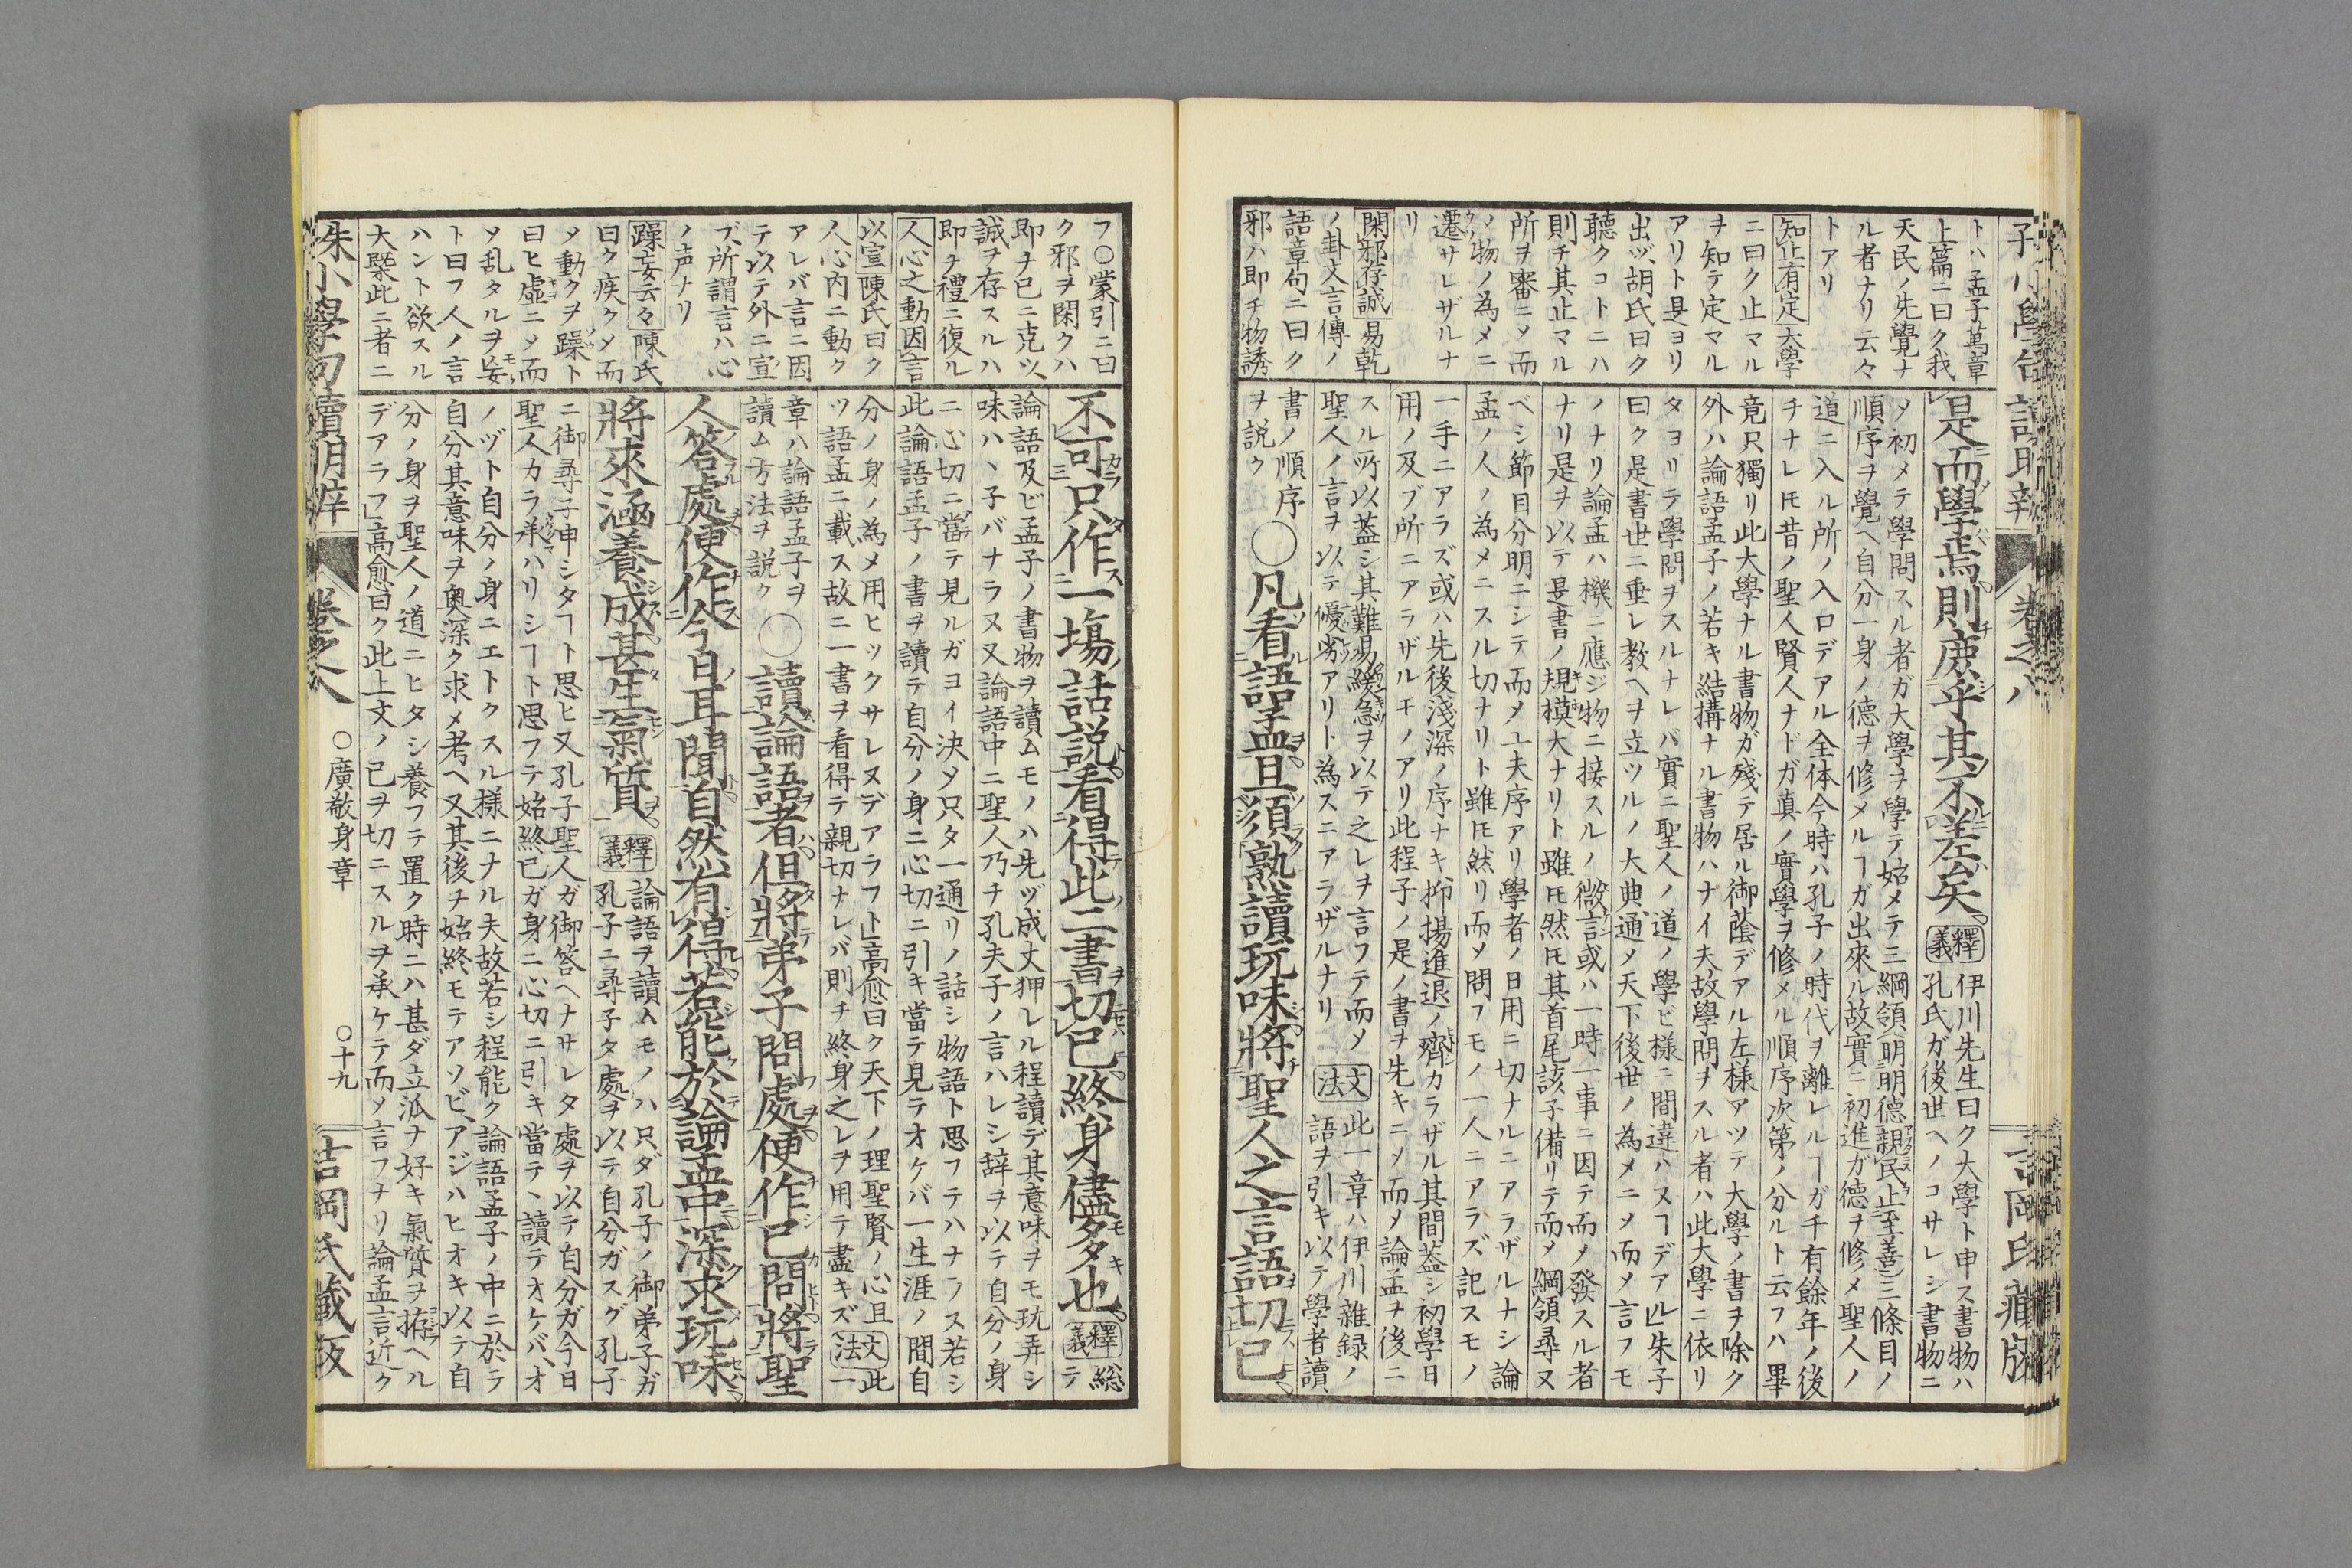 トハ孟子萬章
上篇ニ曰ク我
天民ノ先覺ナ
ル者ナリ云々
トアリ
知止有定大學
ニ曰ク止マル
ヲ知テ定マル
アリト是ヨリ
出ヅ胡氏曰ク
聴クコトニハ
則チ其止マル
所ヲ審ニメ而
ソ物ノ為メニ
遷サレザルナ
リ
閑邪存誠易乾
ノ卦文言傳ノ
語章句ニ曰ク
邪ハ即チ物誘
是而學焉則庶乎其不差矣
釋義
伊川先生曰ク大學ト申ス書物ハ
孔氏ガ後世ヘノコサレシ書物ニ
メ初メテ學問スル者ガ大學ヲ學テ始メテ三綱領明明德親民止至善三條目ノ
順序ヲ覺ヘ自分一身ノ德ヲ修メルヿガ出來ル故實ニ初進ガ德ヲ修メ聖人ノ
道ニ入ル所ノ入口デアル全体今時ハ孔子ノ時代ヲ離レルヿガ千有餘年ノ後
チナレ𪜈昔ノ聖人賢人ナドガ真ノ實學ヲ修メル順序次第ノ分ルト云フハ畢
竟只獨リ此大學ナル書物ガ殘テ居ル御蔭デアル左様アツテ大學ノ書ヲ除ク
外ハ論語孟子ノ若キ結搆ナル書物ハナイ夫故學問ヲスル者ハ此大學ニ依リ
タヨリテ學問ヲスルナレバ實ニ聖人ノ道ノ學ビ様ニ間違ハヌヿデアル」朱子
曰ク是書世ニ垂レ教ヘヲ立ツルノ大典通メ天下後世ノ為メニメ而メ言フモ
ノナリ論孟ハ機ニ應ジ物ニ接スルノ微言或ハ一時一事ニ因テ而メ發スル者
ナリ是ヲ以テ是書ノ規模大ナリト雖𪜈然𪜈其首尾該子備リテ而メ綱領尋ヌ
ベシ節目分明ニシテ而メ工夫序アリ學者ノ日用ニ切ナルニアラザルナシ論
孟ノ人ノ為メニスル切ナリト雖𪜈然リ而メ問フモノ一人ニアラズ記スモノ
一手ニアラズ或ハ先後淺深ノ序ナキ抑揚進退ノ齊カラザル其間蓋シ初學日
用ノ及ブ所ニアラザルモノアリ此程子ノ是ノ書ヲ先キニソ而メ論孟ヲ後ニ
スル所以蓋シ其難易緩急ヲ以テ之レヲ言フテ而メ
聖人ノ言ヲ以テ優劣アリト為スニアラザルナリ
文法
此一章ハ伊川雜録ノ
語ヲ引キ以テ學者讀
書ノ順序
ヲ説ク
○凡看語孟且須熟讀玩味將聖人之言語切己
フ○蒙引ニ曰
ク邪ヲ閑クハ
即チ已ニ克ツ
誠ヲ存スルハ
即チ禮ニ復ル
人心之動因言
以宣陳氏曰ク
人心内ニ動ク
アレバ言ニ因
テ以テ外ニ宣
ブ所謂言ハ心
ノ声ナリ
躁妄云々陳氏
曰ク疾クメ而
メ動クヲ躁ト
曰ヒ虚ニメ而
ソ乱タルヲ妄
ト曰フ人ノ言
ハント欲スル
大槩此ニ者ニ
不可只作一塲話説看得此二書切己終身儘多也
釋義
総テ
論語及ビ孟子ノ書物ヲ讀ムモノハ先ヅ成丈狎レル程讀デ其意味ヲモ玩弄シ
味ハヽ子バナラヌ又論語中ニ聖人乃チ孔夫子ノ言ハレシ辞ヲ以テ自分ノ身
ニ心切ニ當テ見ルガヨイ決メ只タ一通リノ話シ物語ト思フテハナラヌ若シ
此論語孟子ノ書ヲ讀テ自分ノ身ニ心切ニ引キ當テ見テオケバ一生涯ノ間自
分ノ身ノ為メ用ヒツクサレヌデアラフト」高愈曰ク天下ノ理聖賢ノ心且
ツ語孟ニ載ス故ニ一書ヲ看得テ親切ナレバ則チ終身之レヲ用テ盡キズ
文法
此一
章ハ論語孟子ヲ
讀ム方法ヲ説ク
○讀論語者但將弟子問處便作己問將聖
人答處便作今日耳聞自然有得若能於論孟中深求玩味
將來涵養成甚生氣質
釋義
論語ヲ讀ムモノハ只ダ孔子ノ御弟子ガ
孔子ニ尋子タ處ヲ以テ自分ガスグ孔子
ニ御尋子申シタヿト思ヒ又孔子聖人ガ御答ヘナサレタ處ヲ以テ自分ガ今日
聖人カラ承ハリシヿト思フテ始終已ガ身ニ心切ニ引キ當テヽ讀テオケバ、オ
ノヅト自分ノ身ニエトクスル様ニナル夫故若シ程能ク論語孟子ノ中ニ於テ
自分其意味ヲ奥深ク求メ考ヘ又其後チ始終モテアソビ、アジハヒオキ以テ自
分ノ身ヲ聖人ノ道ニヒタシ養フテ置ク時ニハ甚ダ立派ナ好キ氣質ヲ拵ヘル
デアラフ」高愈曰ク此上文ノ已ヲ切ニスルヲ承ケテ而メ言フナリ論孟言近ク
朱小學句讀明辨
卷之八
○廣敬身章
○十九
吉岡氏藏版